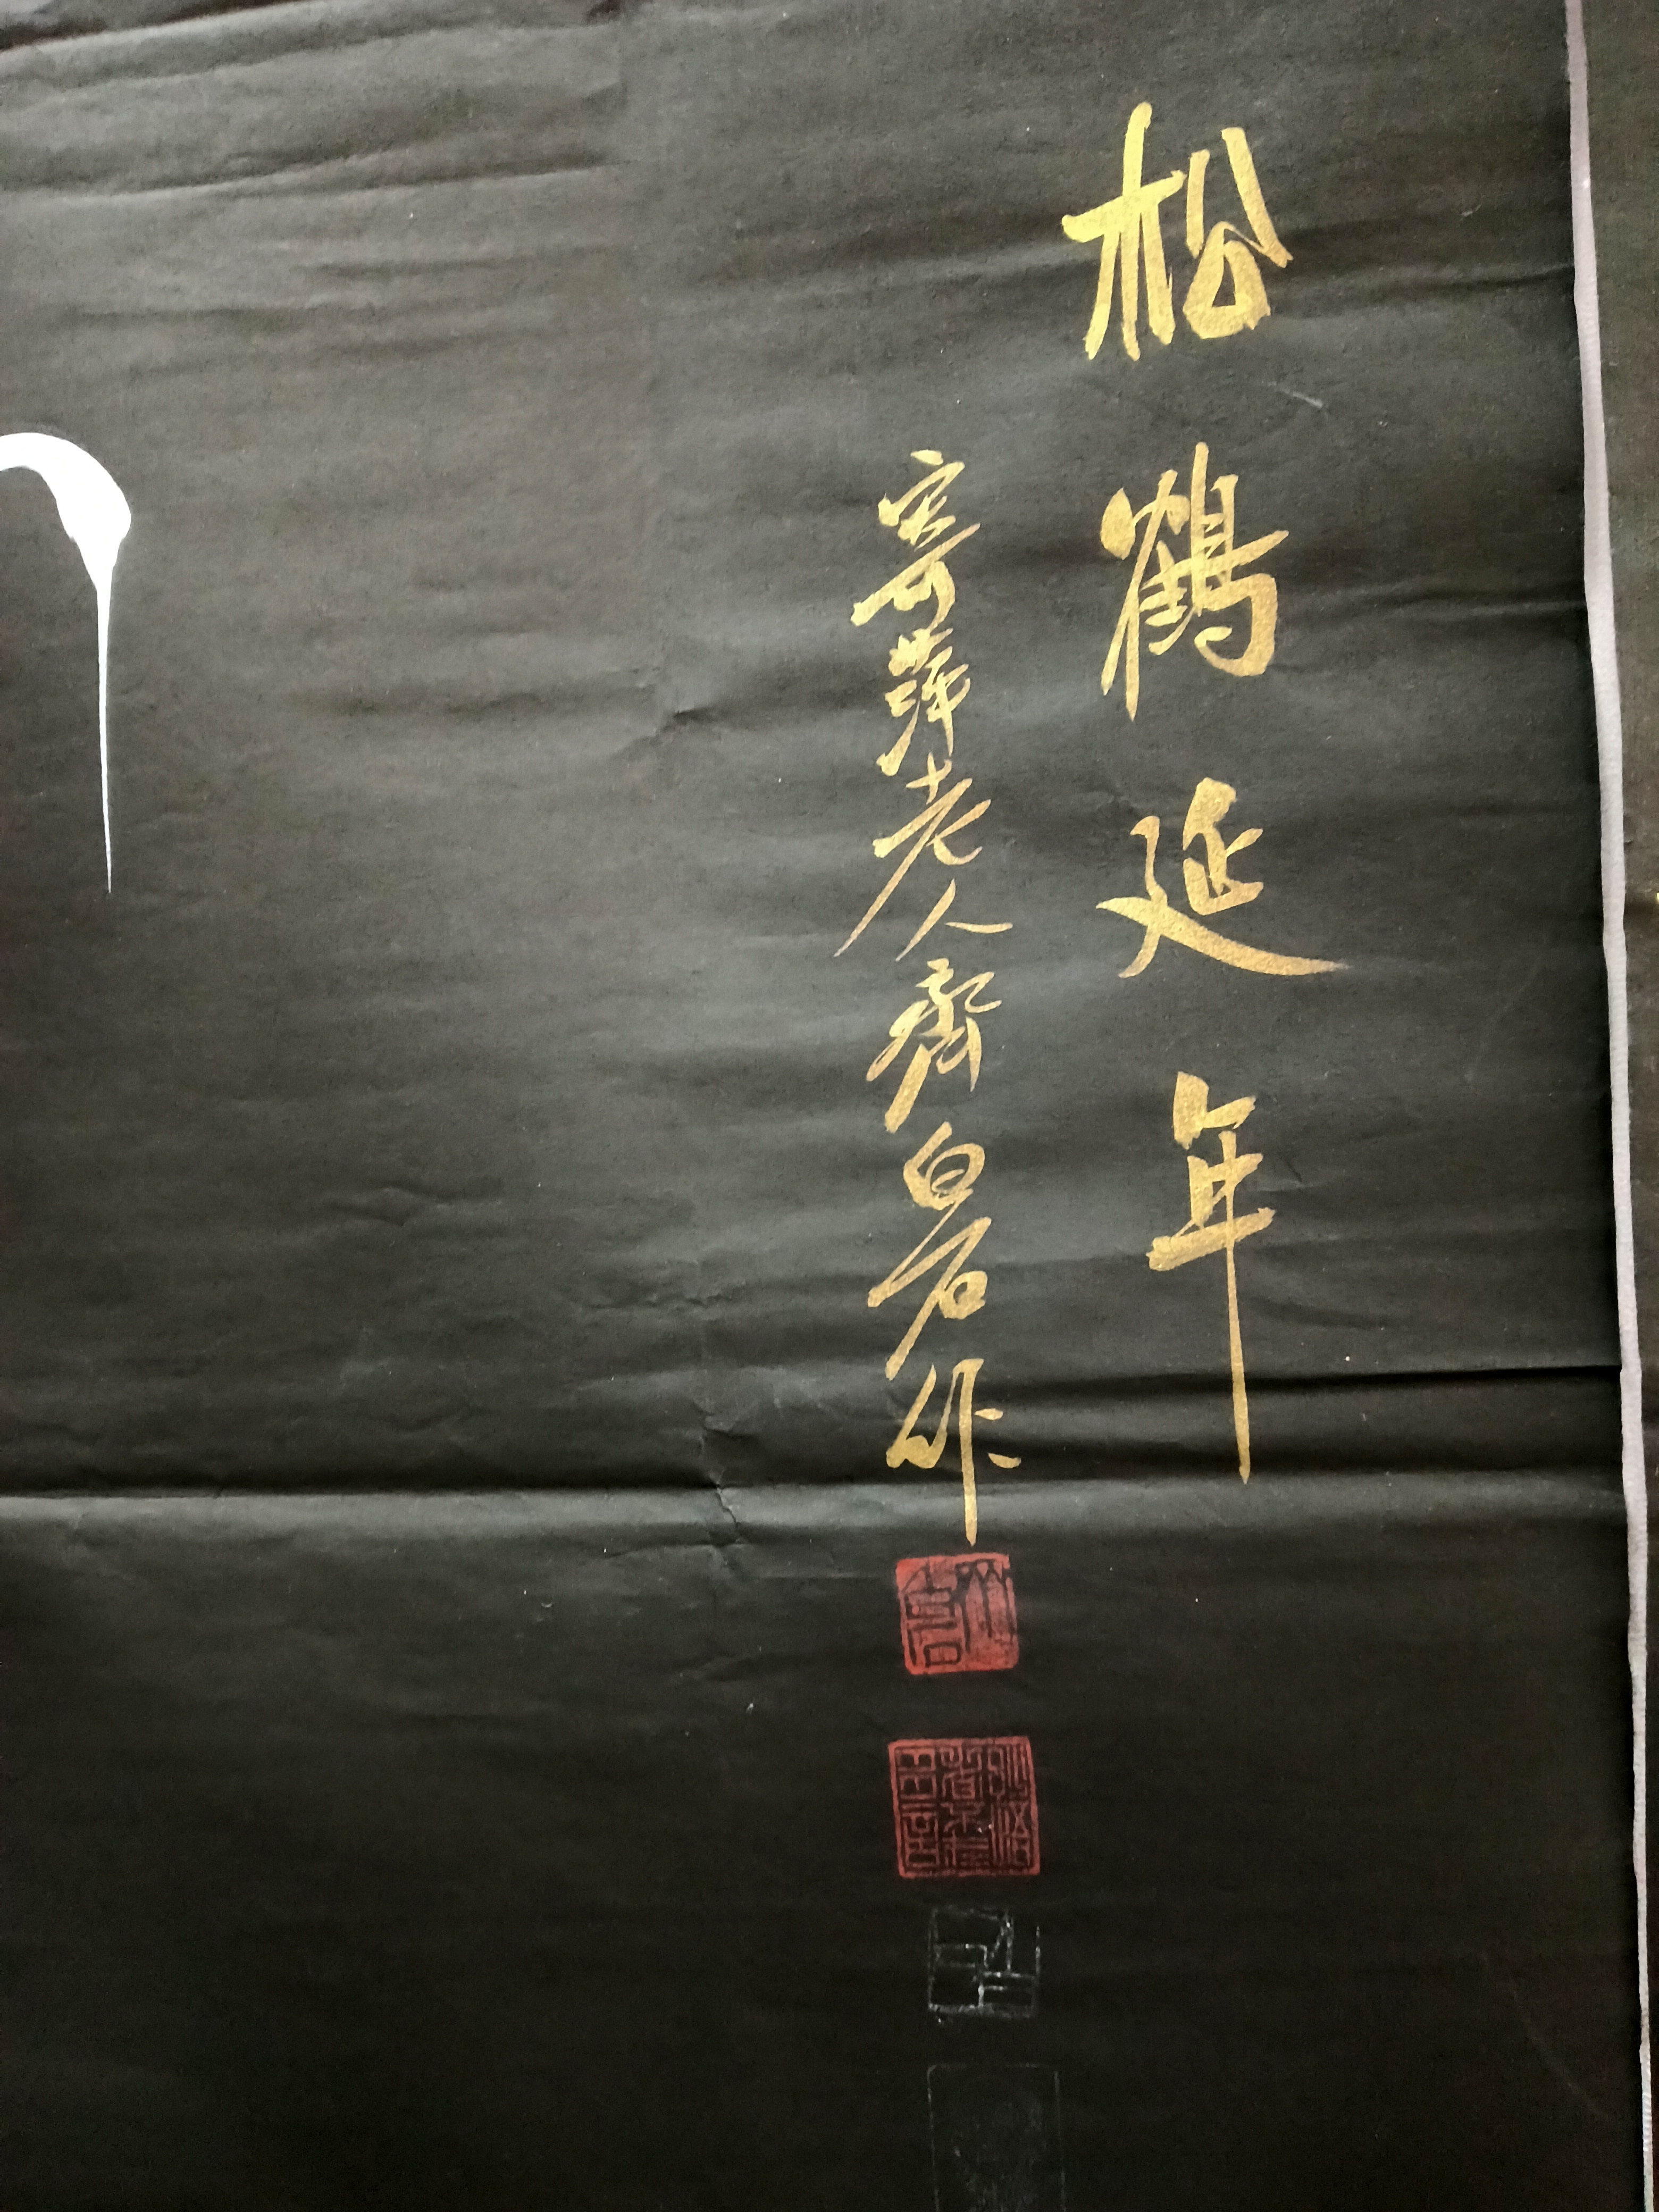 松鶴延年
寄萍老人齊白石作